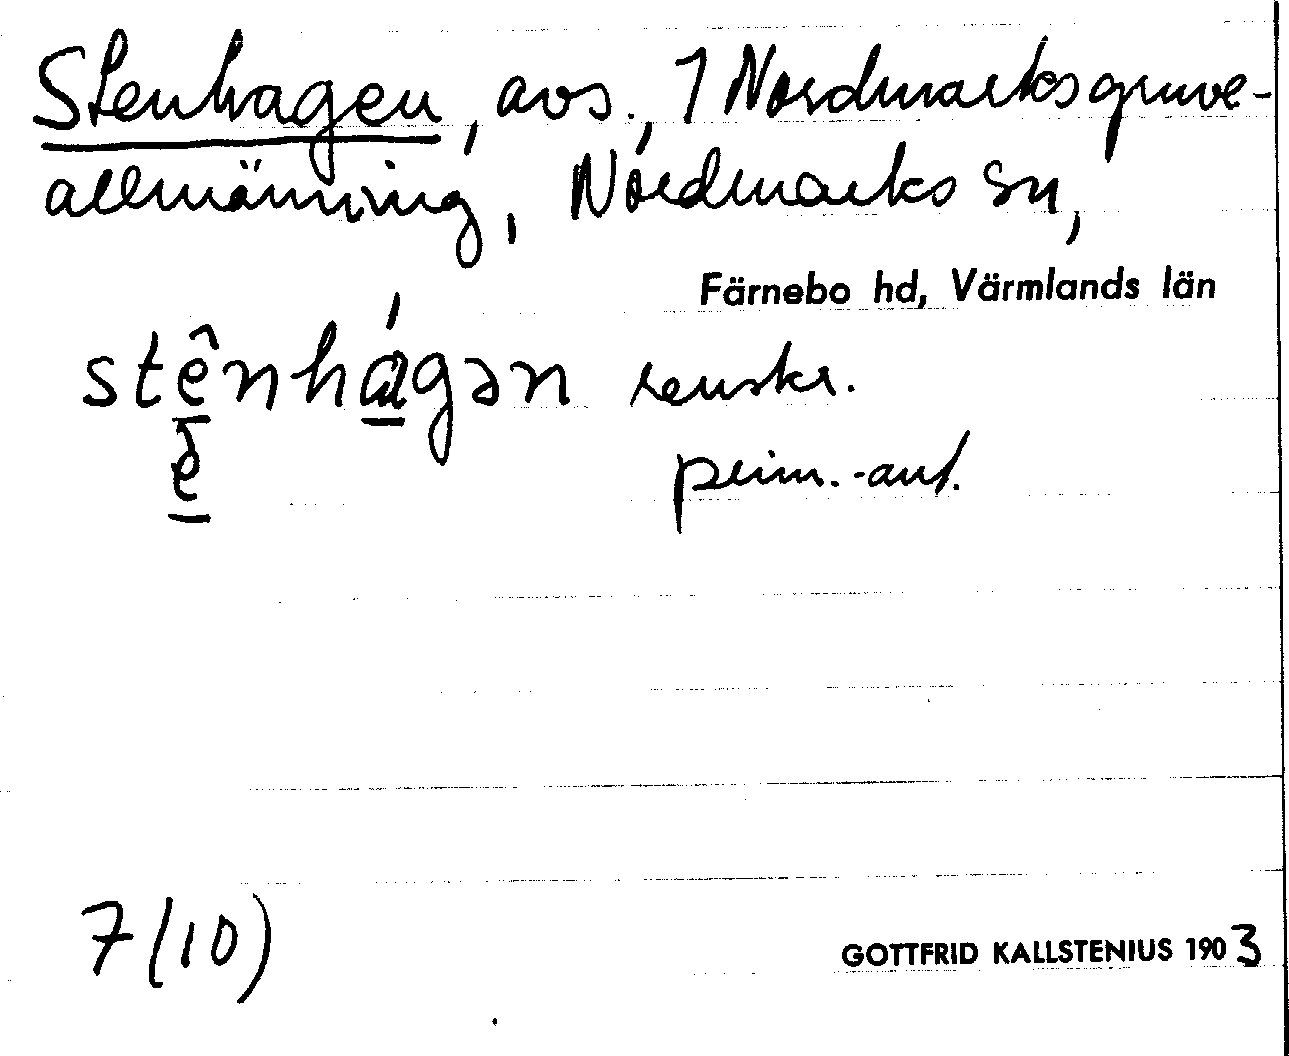 Stenhagen, avs., 1 Nordmarksgruve-
allmänning, Nordmarks sn,
Färnebo hd, Värmlands län
stênhágən renskr.
e prim.-ant.
7(10)
GOTTFRID KALLSTENIUS 1903